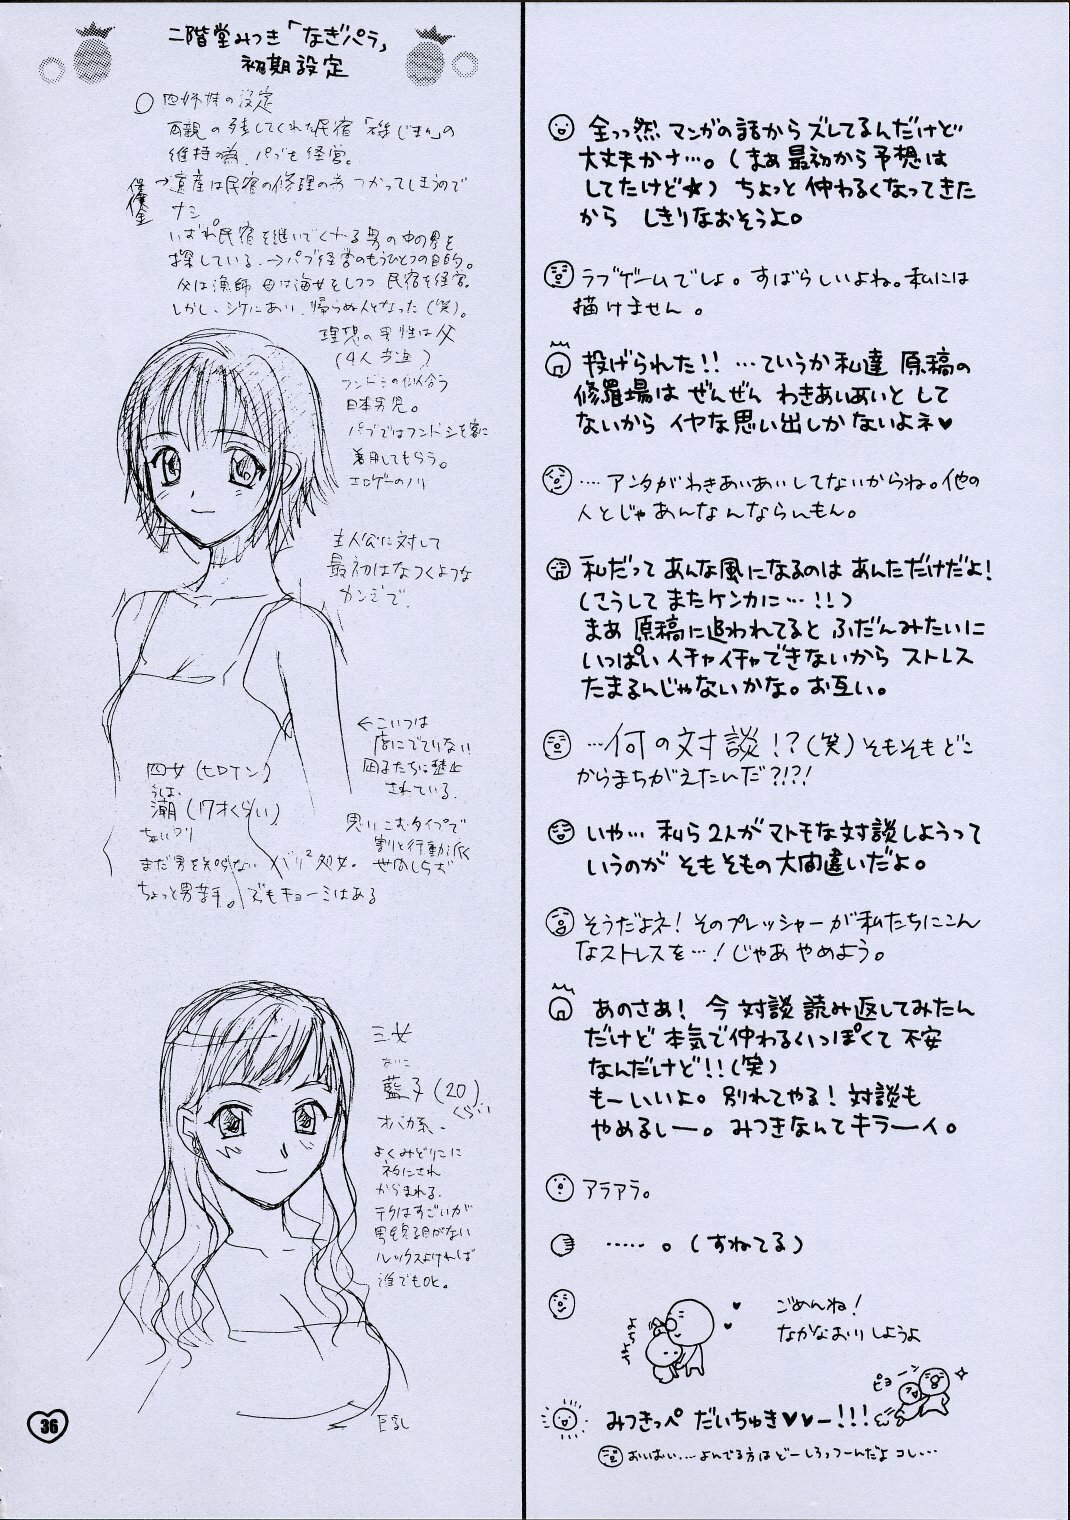 二階堂みつき「なぎパラ」
初期設定
○ 四姉妹の設定
両親の残してくれた民宿「磯じまん」の
維持の為、パブも経営。
→遺産は民宿の修理の為つかってしまうので
ナシ
いずれ民宿を継いでくれる男の中の男を
探している。→パブ経営のもうひとつの目的。
父は漁師 母は海女をしつつ 民宿を経営。
しかし、シケにあい、帰らぬ人となった(笑)。
理想の男性は父
(4人共通)
フンドシの似合う
日本男児。
パブではフンドシを客に
着用してもらう。
エロゲーのノリ
主人公に対して
最初はなつくような
カンジで。
←こいつは
店にでていない
姉たちに禁止
されている。
四女(ヒロイン)
うしお
潮(17才くらい)
まだ男を知らない バリ²処女。
ちょっと男苦手。でもキョーミはある
思いこむタイプで
割と行動派
世間しらず
三女
あいこ
藍子(20)
くらい
オバカ系。
よくみどりこに
ネタにされ
からまれる。
テクはすごいが
男を見る目がない
ルックスよければ
誰でもOK。
巨乳
36
全っっ然 マンガの話から ズレてるんだけど
大丈夫かナ…。(まあ 最初から予想は
してたけど★) ちょっと 仲わるくなってきた
から しきりなおそうよ。
ラブゲームでしょ。すばらしいよね。私には
描けません。
投げられた!! …ていうか 私達 原稿の
修羅場は ぜんぜん わきあいあいと して
ないから イヤな思い出しか ないよネ♥
…. アンタが わきあいあいしてないからね。他の
人とじゃ あんなんならんもん。
私だって あんな風になるのは あんただけだよ!
(こうして またケンカに…!!)
まあ 原稿に追われてると ふだんみたいに
いっぱい イチャイチャできないから ストレス
たまるんじゃないかな。お互い。
…何の対談!?(笑)そもそもどこ
からまちがえたんだ?!?!
いや… 私ら2人が マトモな対談しようって
いうのが そもそもの大間違いだよ。
そうだよネ! そのプレッシャーが 私たちにこん
なストレスを…! じゃあ やめよう。
あのさあ! 今 対談 読み返してみたん
だけど 本気で仲わるいっぽくて 不安
なんだけど!!(笑)
もーいいよ。別れてやる! 対談も
やめるしー。みつきなんて キラーイ。
アラアラ。
…… 。(すねてる)
よしよし
ごめんね!
なかなおりしようよ
ピョーン
みつきっぺ だいちゅき♥♥ー!!!
おいおい…よんでる方は どーしろっつーんだよ コレ…